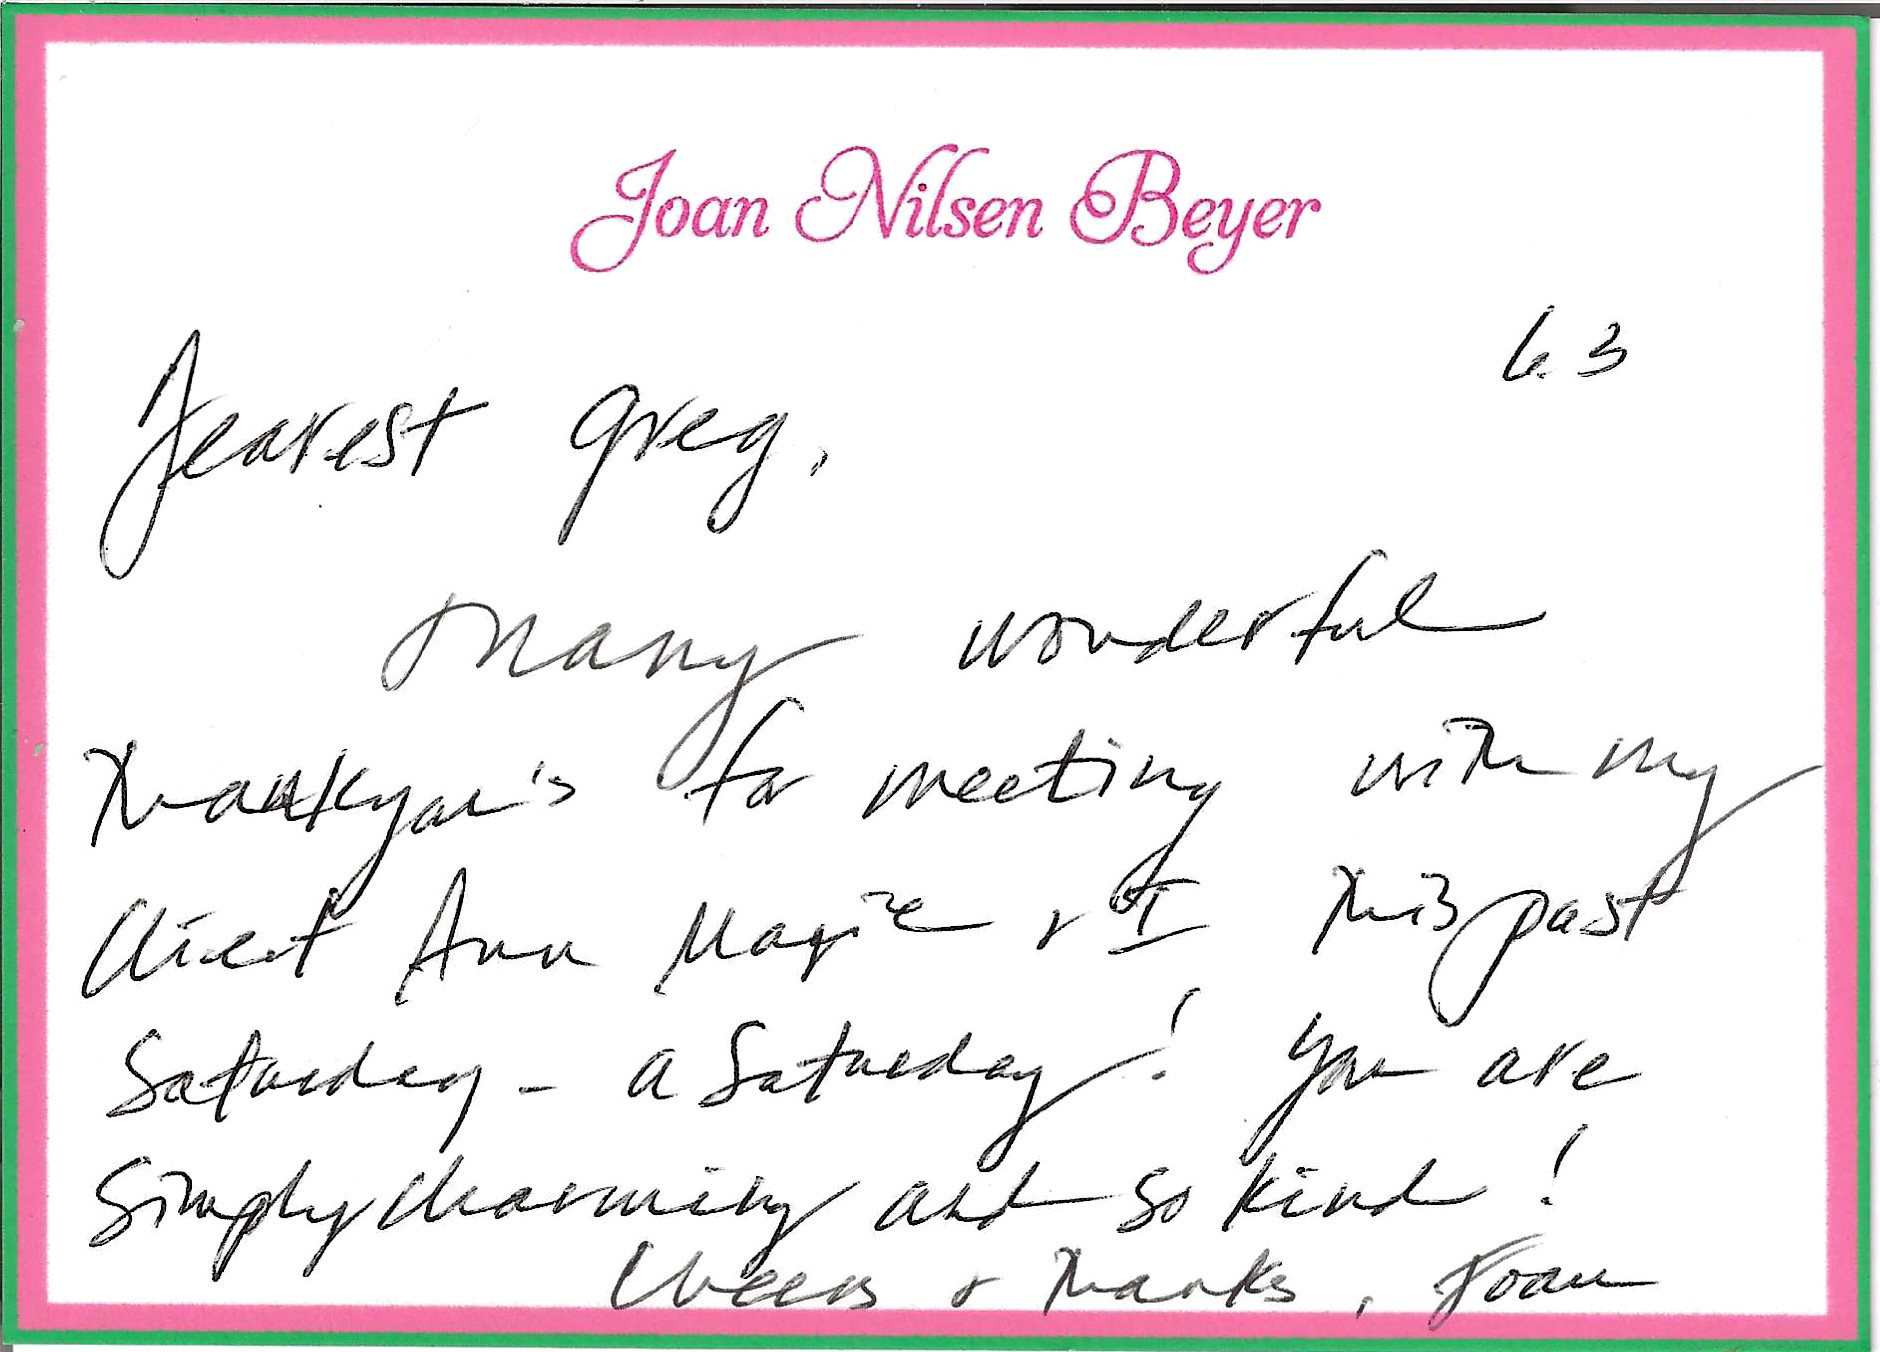 Joan Nilsen Beyer
6.3
Dearest Greg,
Many wonderful
Thankyou's for meeting with my
Client Ann Magie & I this past
Saturday - a Saturday! You are
Simply charming and so kind!
Cheers & Thanks, Joan